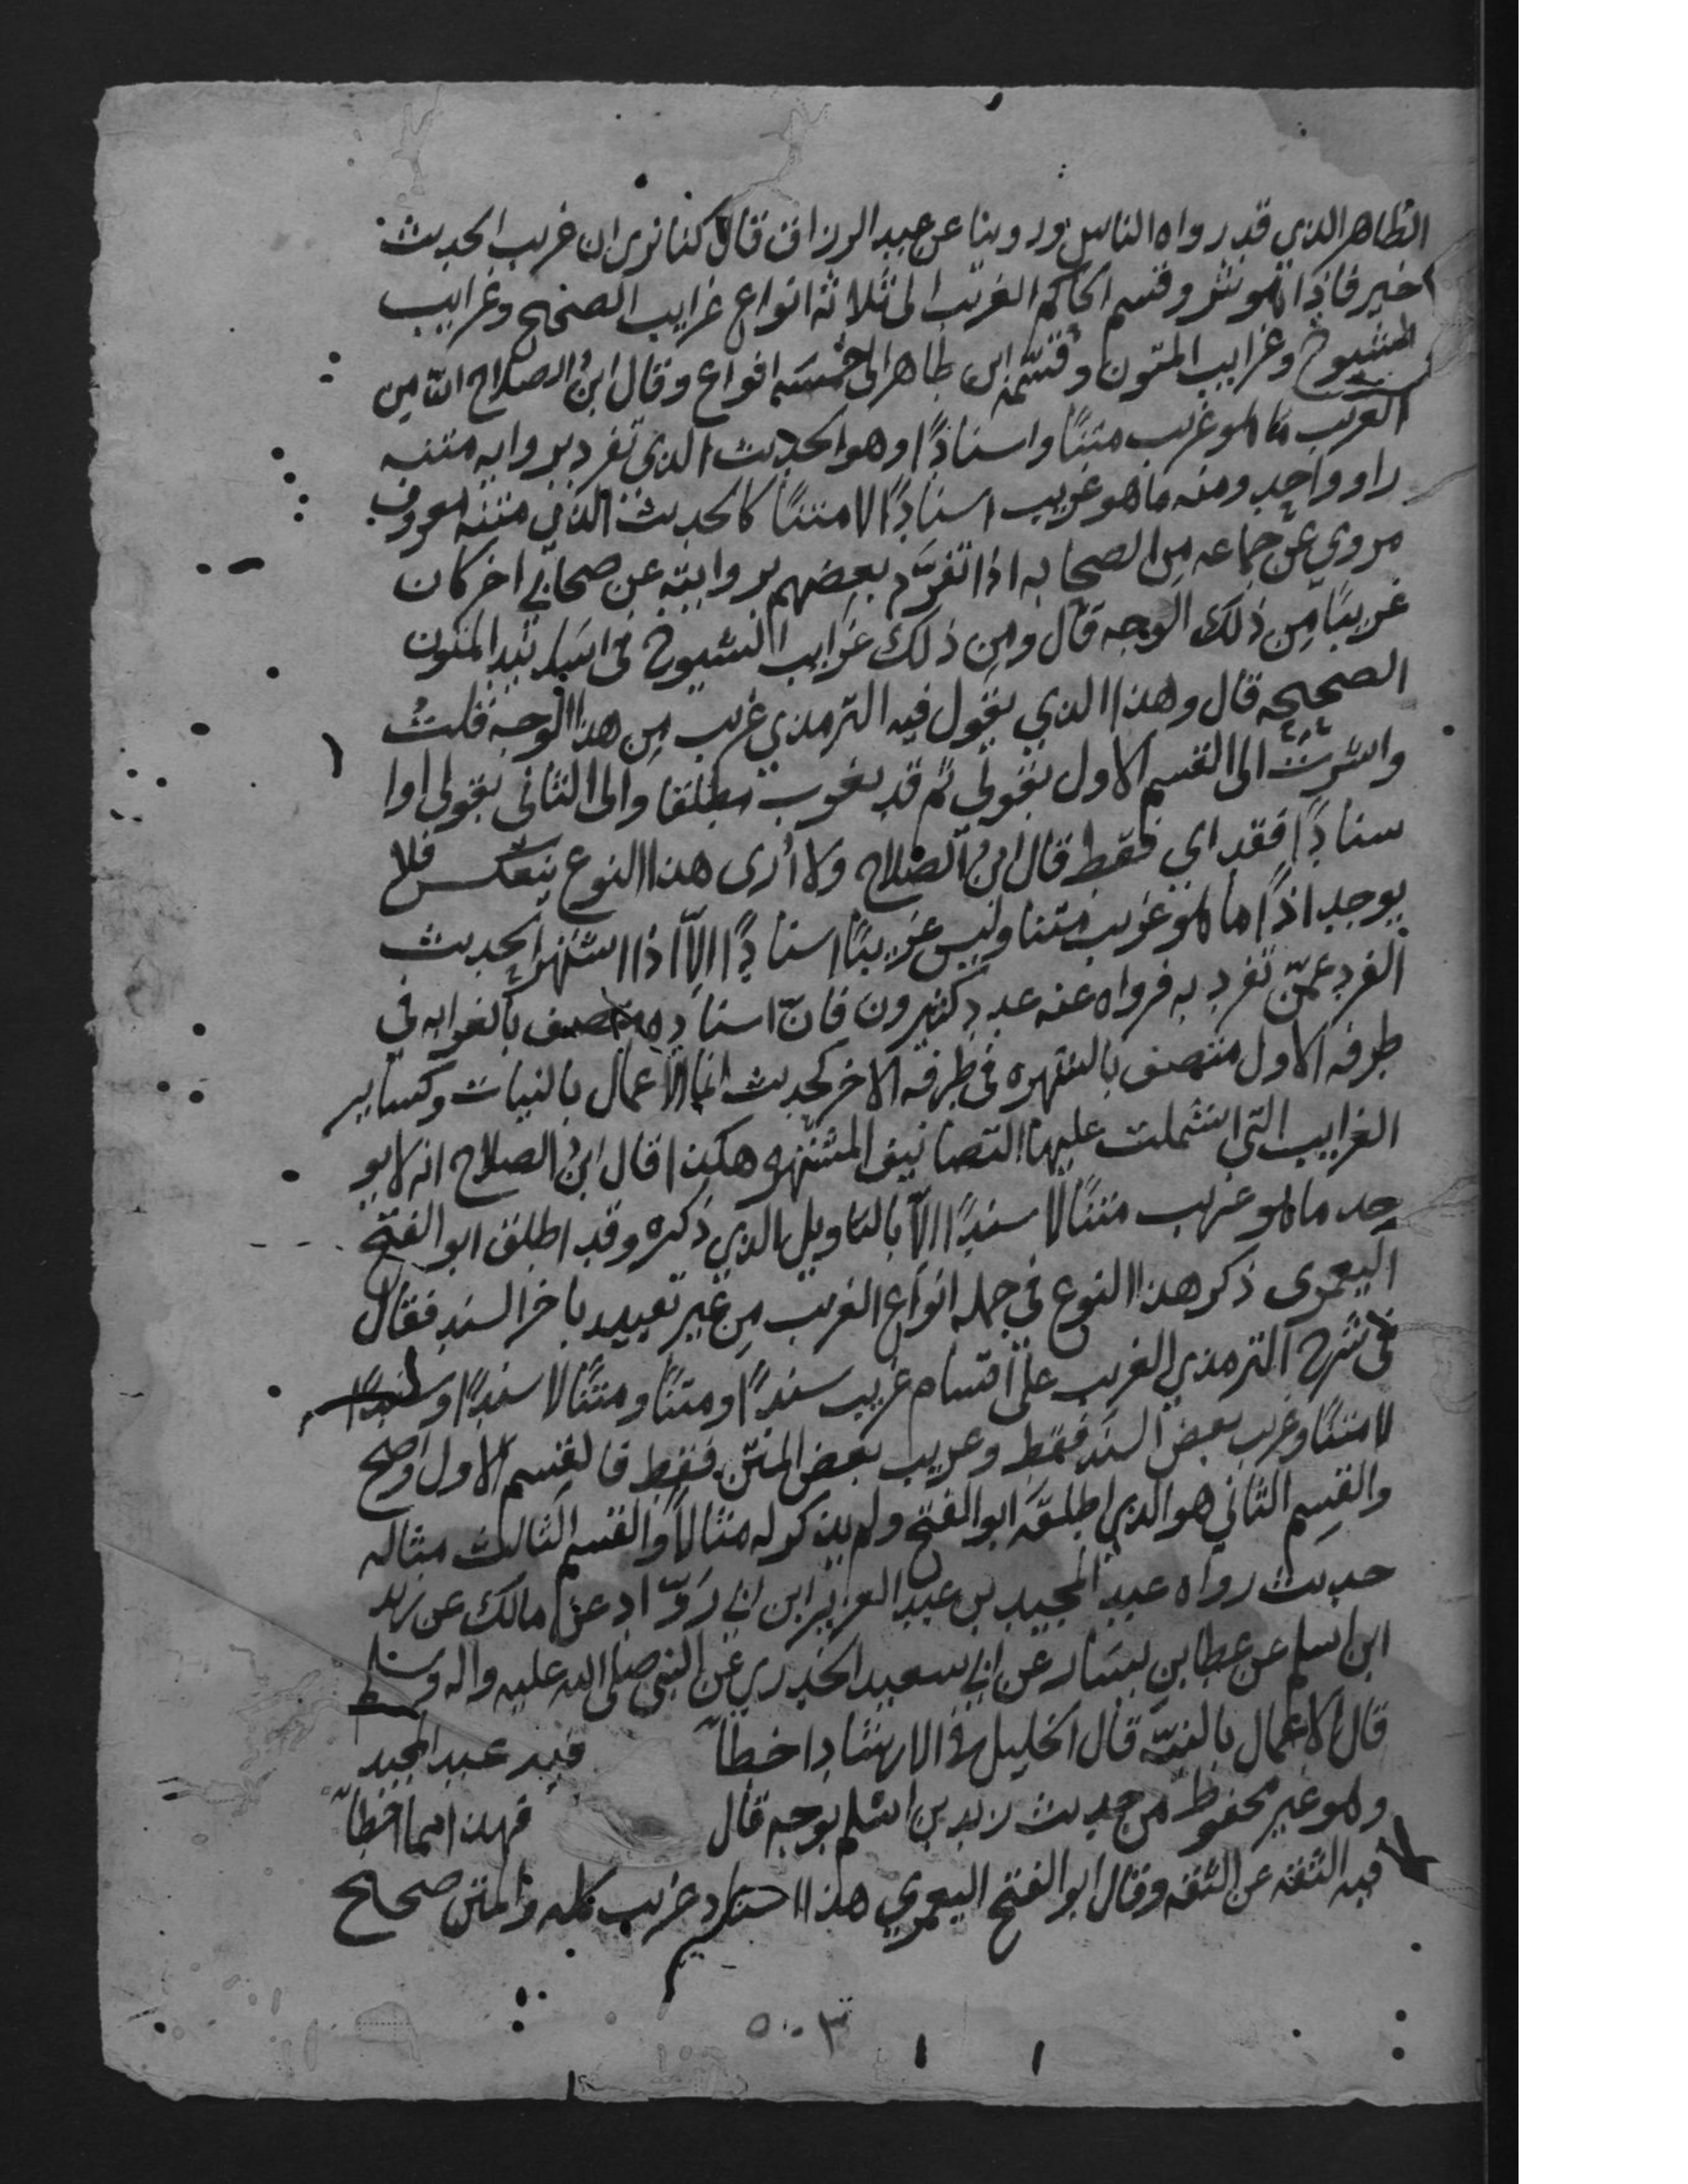 الظاهر الذي قد رواه الناس وروينا عن عبد الرزاق قال كنا نرى ان غريب الحديث
خير فاذا هو شر وقسم الحاكم الغريب الى ثلاثة انواع غرايب الصحيح وغرايب
الشيوخ وغرايب المتون وقسّمه ابن طاهر الى خمسه انواع وقال ابن الصلاح انّ من
الغريب ما هو غريب متنًا واسنادًا وهو الحديث الذي تفرد بروايه متنه
راو واحد ومنه ما هو غريب اسنادًا لا متنًا كالحديث الذي متنه معروف
مروي عن جماعه من الصحابه اذا تفرَّد بعضهم بروايته عن صحابي اخر كان
غريبًا من ذلك الوجه قال ومن ذلك غرايب الشيوخ في اسانيد المتون
الصحيحه قال وهذا الذي يقول فيه الترمذي غريب من هذا الوجه قلت
واشرت الى القسم الاول بقولي ثم قد يغرب مطلقا والى الثاني بقولي اوا
سنادًا فقد اي فقط قال ابن الصلاح ولا أرى هذا النوع ينعكس فلا
يوجد اذًا ما هو غريب متنا وليس غريبًا اسنادًا الاّ اذا اشتهر الحديث
الفرد عمّن تفرد به فرواه عنه عدد كثيرون فانّ اسناده متصف بالغرابه في
طرفه الاول متصف بالشهره في طرفه الاخر كحديث انما الاعمال بالنيات وكساير
الغرايب التي اشتملت عليها التصانيف المشتهره هكذا قال ابن الصلاح انه لا يو
جد ما هو غريب متنًا لا سندًا الاّ بالتاويل الذي ذكره وقد اطلق ابو الفتح
اليعمرى ذكر هذا النوع في جمله انواع الغريب من غير تقييد باخر السند فقال
في شرح الترمذي الغريب على اقسام غريب سندًا ومتنًا ومتنًا لا سندًا وسندًا
لا متنًا وغريب بعض السند فقط وغريب بعض المتن فقط فالقسم الاول واضح
والقسم الثاني هو الذي اطلقه ابو الفتح ولم يذكر له مثالاً والقسم الثالث مثاله
حديث رواه عبد المجيد بن عبد العزيز ابن ابي روّاد عن مالك عن زيد
ابن اسلم عن عطا بن يسار عن ابي سعيد الخدري عن النبي صلى الله عليه واله وسلم
قال الاعمال بالنيّه قال الخليلي في الارشاد اخطأ فيه عبد المجيد
وهو غير محفوظ من حديث زيد بن اسلم بوجه قال فهذا مما اخطأ
فيه الثقه عن الثقه وقال ابو الفتح اليعمري هذا اسناد غريب كله والمتن صحيح